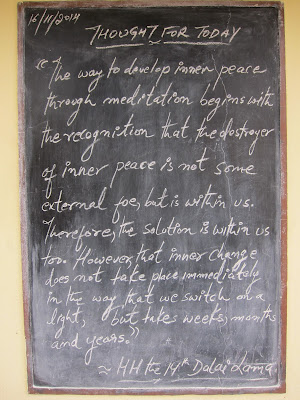 16/11/2014
THOUGHT FOR TODAY
"The way to develop inner peace
through meditation begins with
the recognition that the destroyer
of inner peace is not some
external foe, but is within us.
Therefore, the solution is within us
too. However, that inner change
does not take place immediately
in the way that we switch on a
light, but takes weeks, months
and years."
~ HH the 14th Dalai Lama.